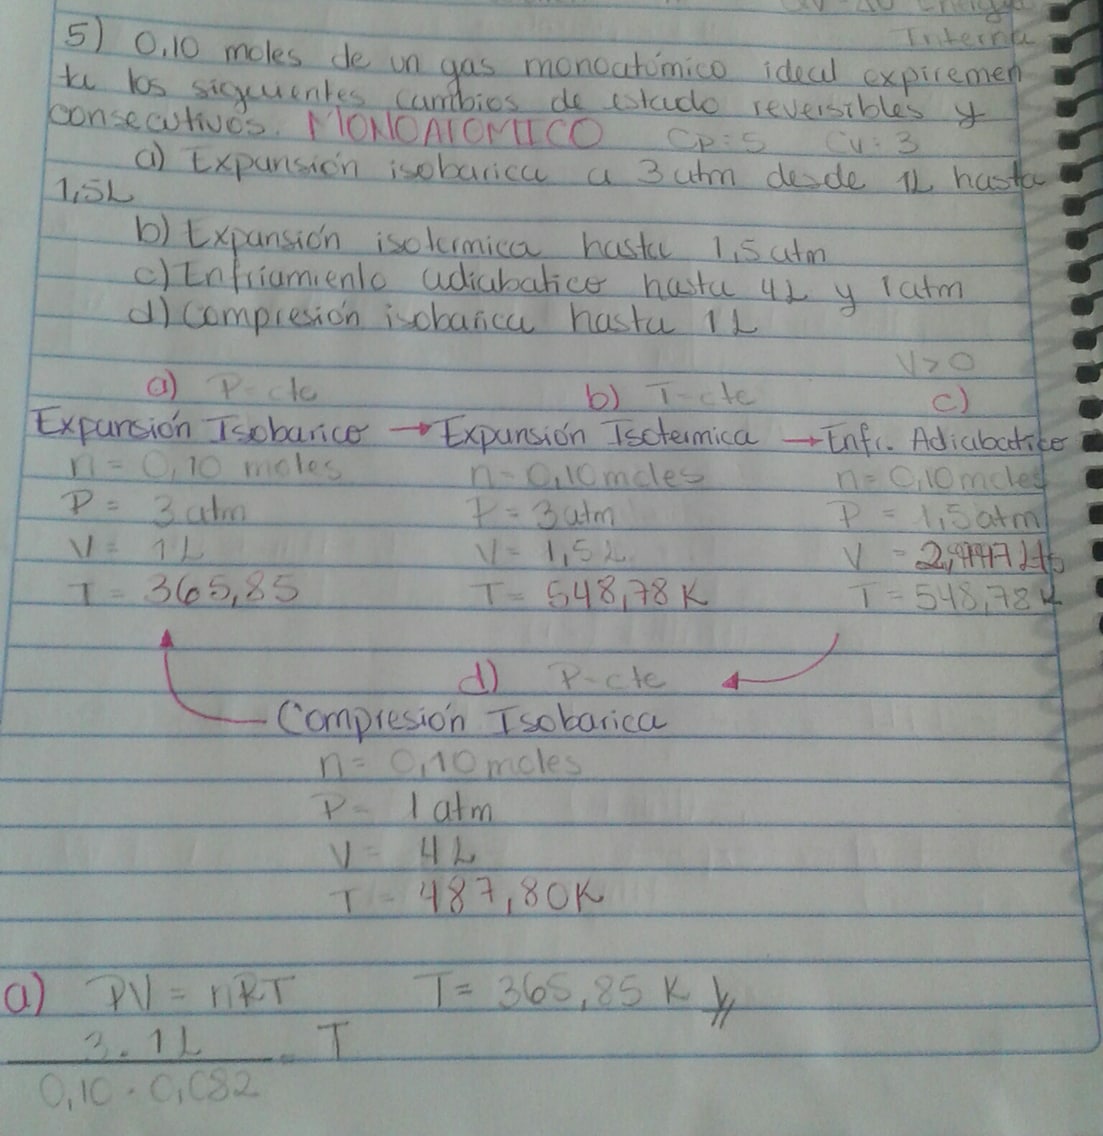 Interna
5) 0,10 moles de un gas monoatómico ideal expiremen
ta los siguientes cambios de estado reversibles y
consecutivos. MONOATOMICO Cp: 5 Cv: 3
a) Expansión isobarica a 3 atm desde 1L hasta
1,5L
b) Expansión isotermica hasta 1,5 atm
c) Enfriamiento adiabatico hasta 4L y 1 atm
d) Compresión isobarica hasta 1 L
V>0
a) P-cte b) T-cte c)
Expansión Isobarico → Expansión Isotermica → Enfr. Adiabatico
n = 0,10 moles n = 0,10 moles n = 0,10 moles
P = 3 atm P = 3 atm P = 1,5 atm
V = 1L V = 1,5 L V =
T = 365,85 T = 548,78 K T = 548,78 K
d) P-cte
Compresión Isobarica
n = 0,10 moles
P = 1 atm
V = 4 L
T = 487,80K
a) PV = nRT T = 365,85 K
3 . 1 L = T
0,10 . 0,082